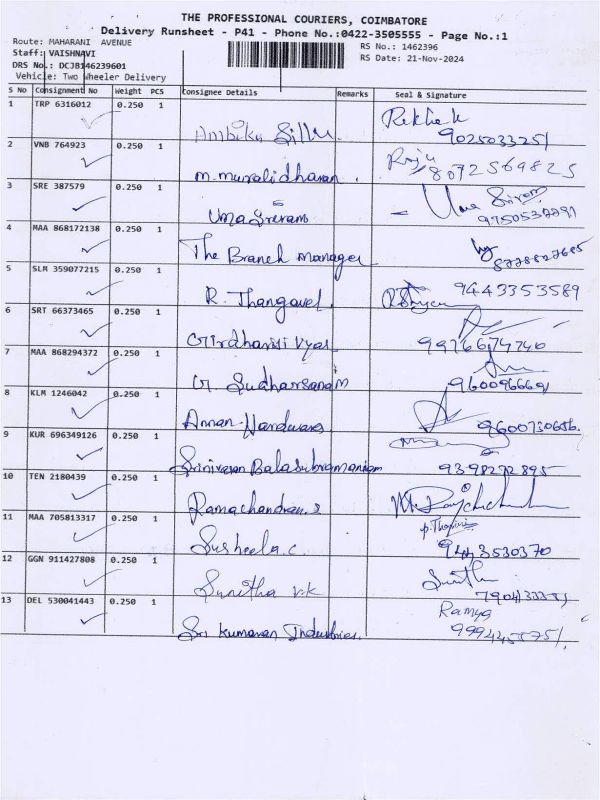 THE PROFESSIONAL COURIERS, COIMBATORE
Delivery Runsheet - P41 - Phone No.:0422-3505555 - Page No.:1
Route: MAHARANI AVENUE
RS No.: 1462396
Staff: VAISHNAVI
RS Date: 21-Nov-2024
DRS No.: DCJB146239601
Vehicle: Two Wheeler Delivery
S No Consignment No Weight PCS Consignee Details Remarks Seal & Signature
1 TRP 6316012 0.250 1
Rekha k
9025033251
2 VNB 764923 0.250 1
m. muralidharan . Raju
8072569825
3 SRE 387579 0.250 1
Uma Sriram Uma Sriram
4 MAA 868172138 0.250 1
The Branch manager
5 SLM 359077215 0.250 1
R. Thangavel 9443353589
6 SRT 66373465 0.250 1
7 MAA 868294372 0.250 1
G. Sudharsanam
8 KLM 1246042 0.250 1
9 KUR 696349126 0.250 1
Srinivasan Balasubramaniam 9398272895
10 TEN 2180439 0.250 1
Ramachandran.s
11 MAA 705813317 0.250 1
Susheela.c.
12 GGN 911427808 0.250 1
Sunitha v.k
13 DEL 530041443 0.250 1
Ramya
Sri Kumaran Industries.